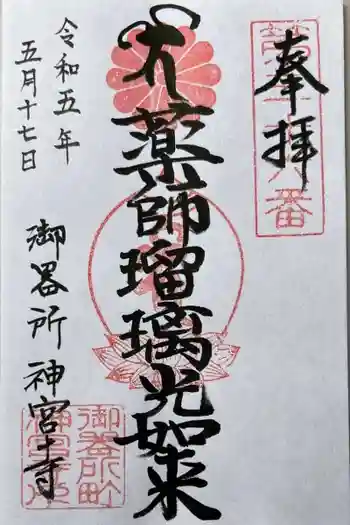 奉拝
薬師瑠璃光如来
令和五年
五月十七日
御器所 神宮寺
御器所町